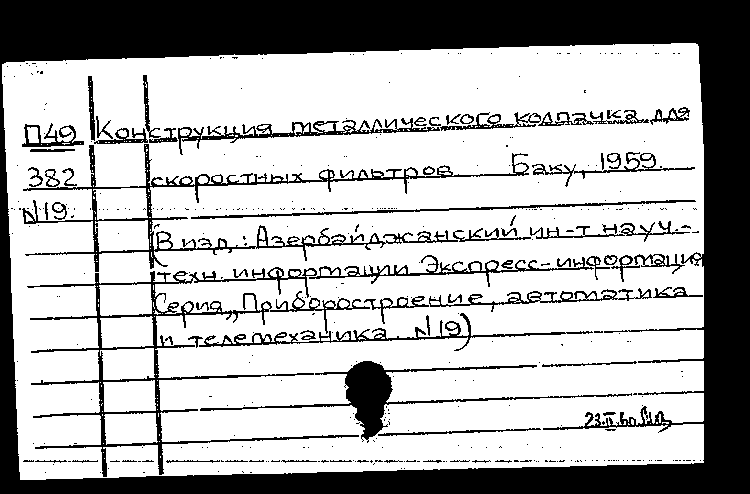 П49 Конструкция металлического колпачка для
382 скоростных фильтров Баку, 1959.
N19.
(В изд.: Азербайджанский ин-т науч.-
техн. информации Экспресс-информация
Серия „Приборостроение, автоматика
и телемеханика N19)
23.II.60